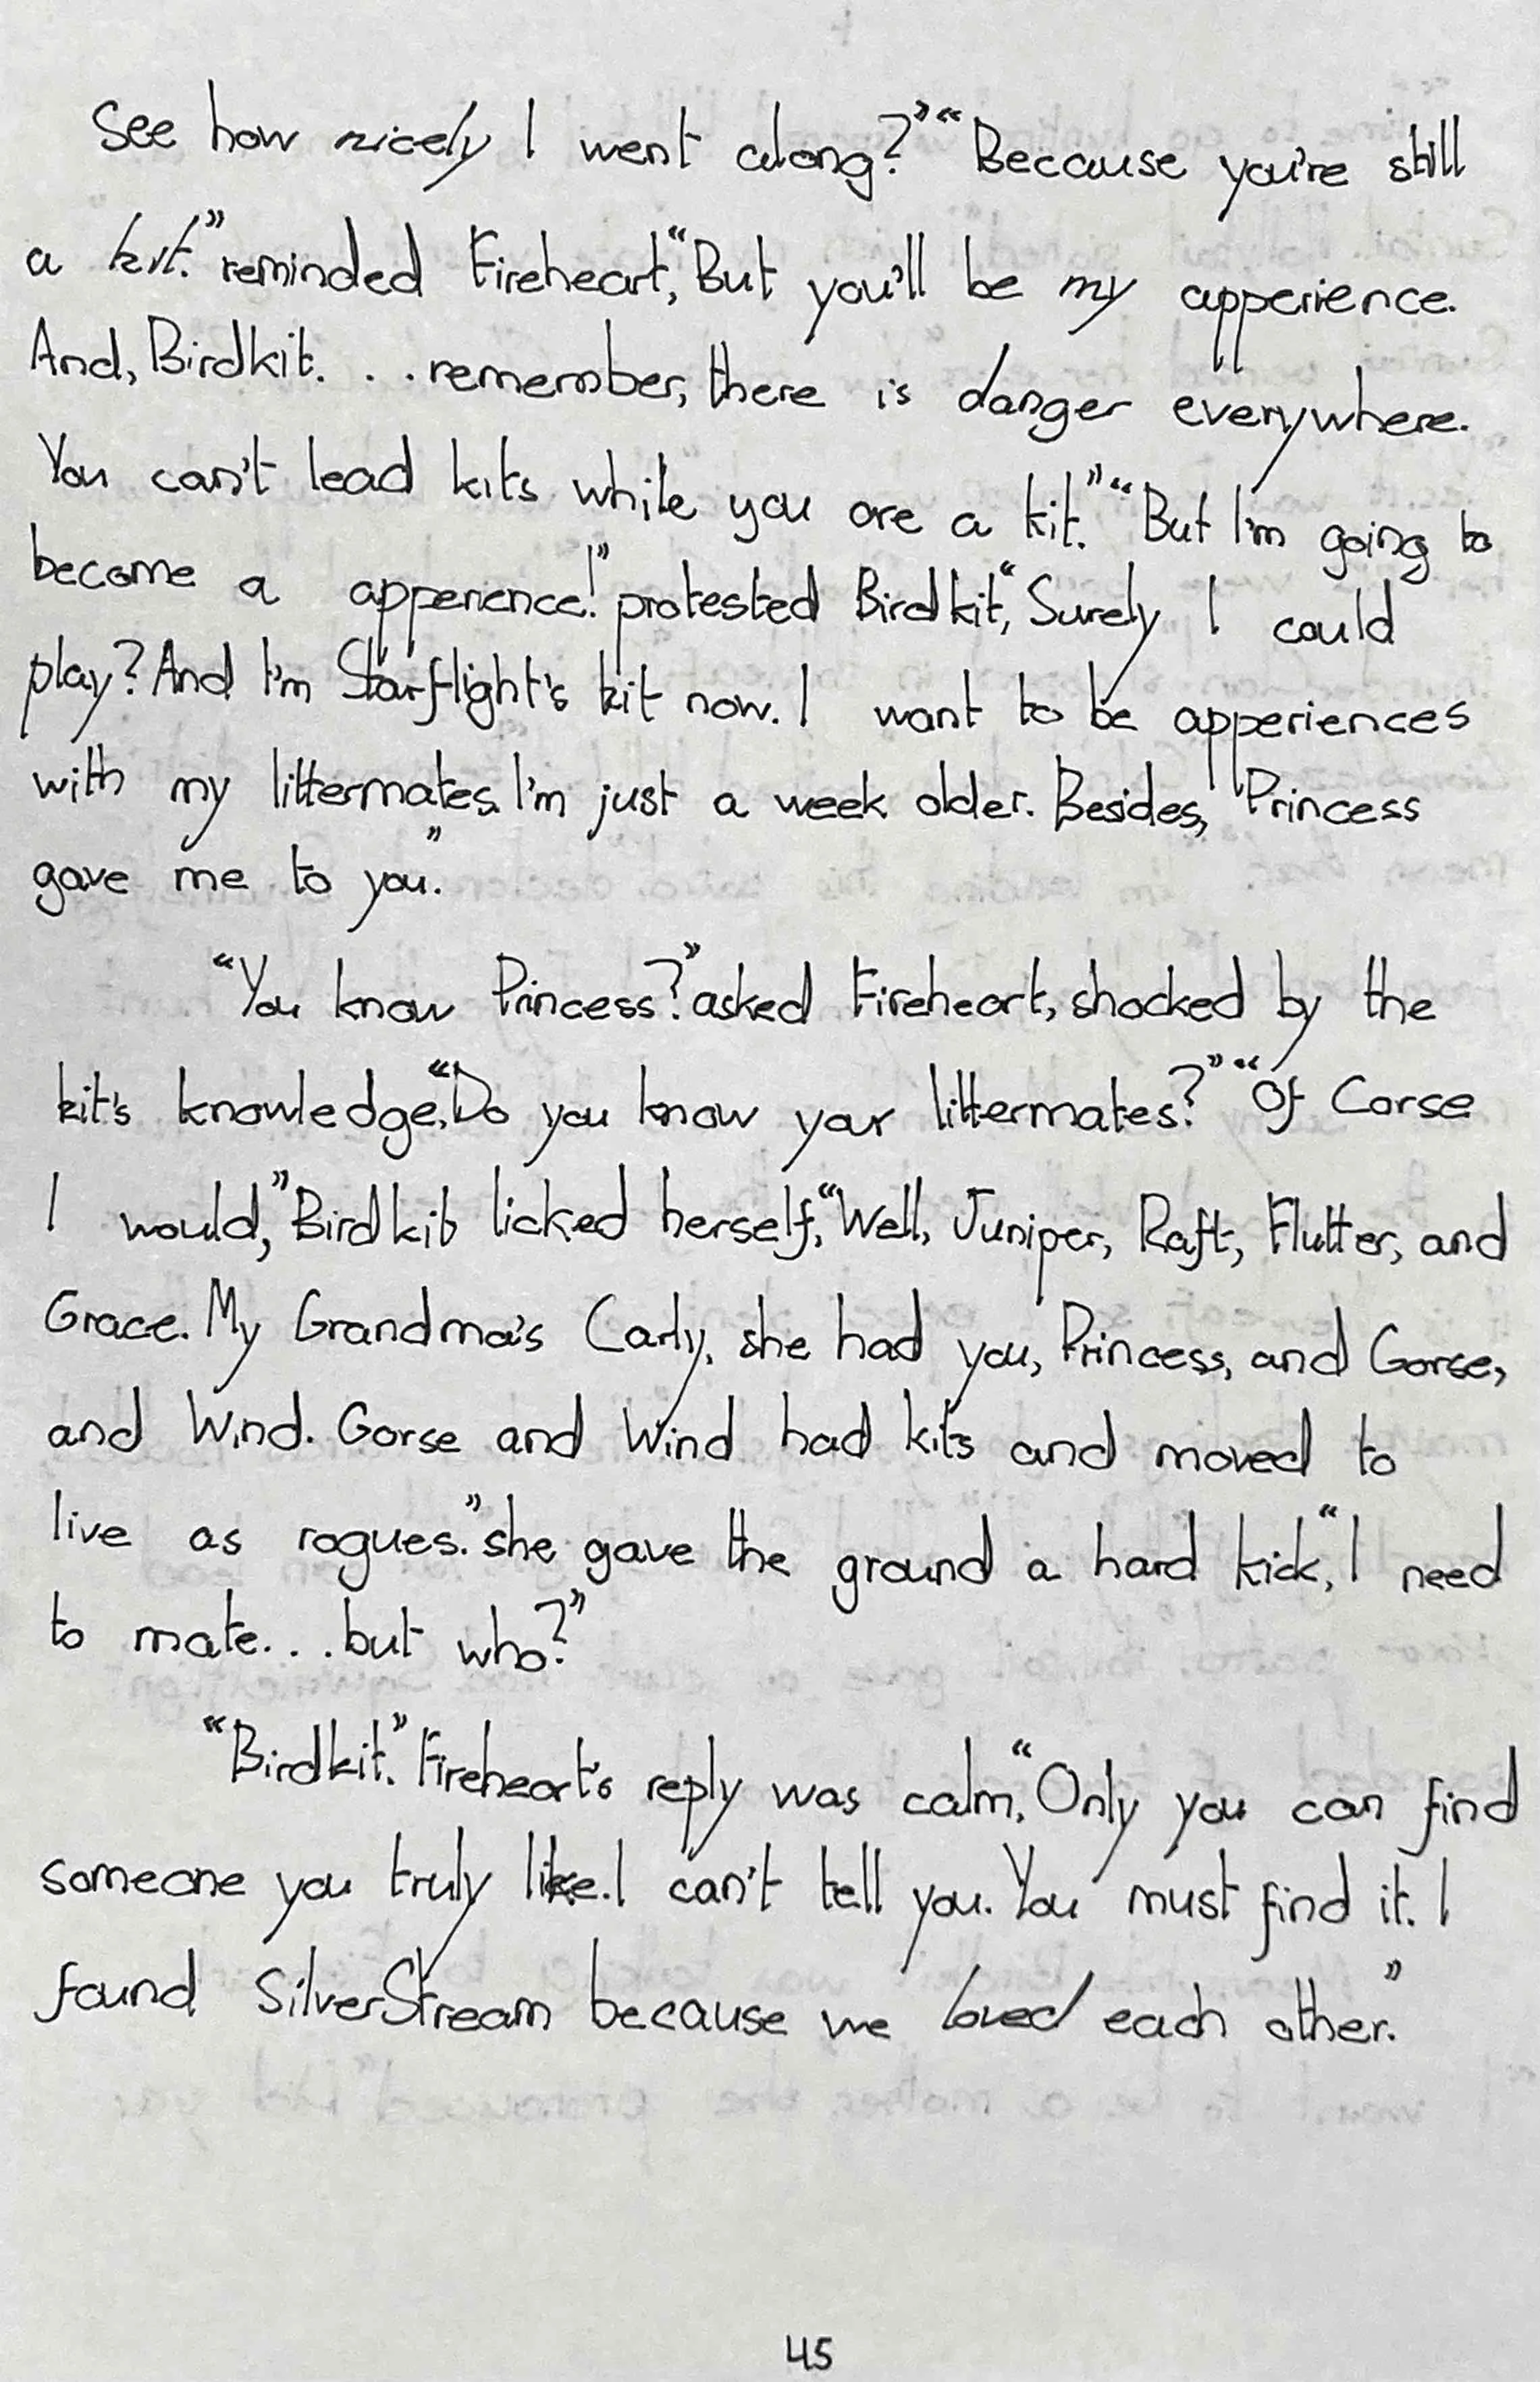 See how nicely I went along?” “Because you're still
a kit.” reminded Fireheart, “But you'll be my apperience.
And, Birdkit. . . remember, there is danger everywhere.
You can't lead kits while you are a kit.” “But I'm going to
become a apperience!” protested Birdkit, “Surely I could
play? And I'm Starflight's kit now. I want to be apperiences
with my littermates. I'm just a week older. Besides, Princess
gave me to you.”
“You know Princess?” asked Fireheart, shocked by the
kit's knowledge, “Do you know your littermates?” “Of Corse
I would,” Birdkit licked herself, “Well, Juniper, Raft, Flutter, and
Grace. My Grandma's Carly, she had you, Princess, and Gorse,
and Wind. Gorse and Wind had kits and moved to
live as rogues.” she gave the ground a hard kick, “I need
to mate. . . but who?”
“Birdkit.” Fireheart's reply was calm, “Only you can find
someone you truly like. I can't tell you. You must find it. I
found SilverStream because we loved each other.”
45